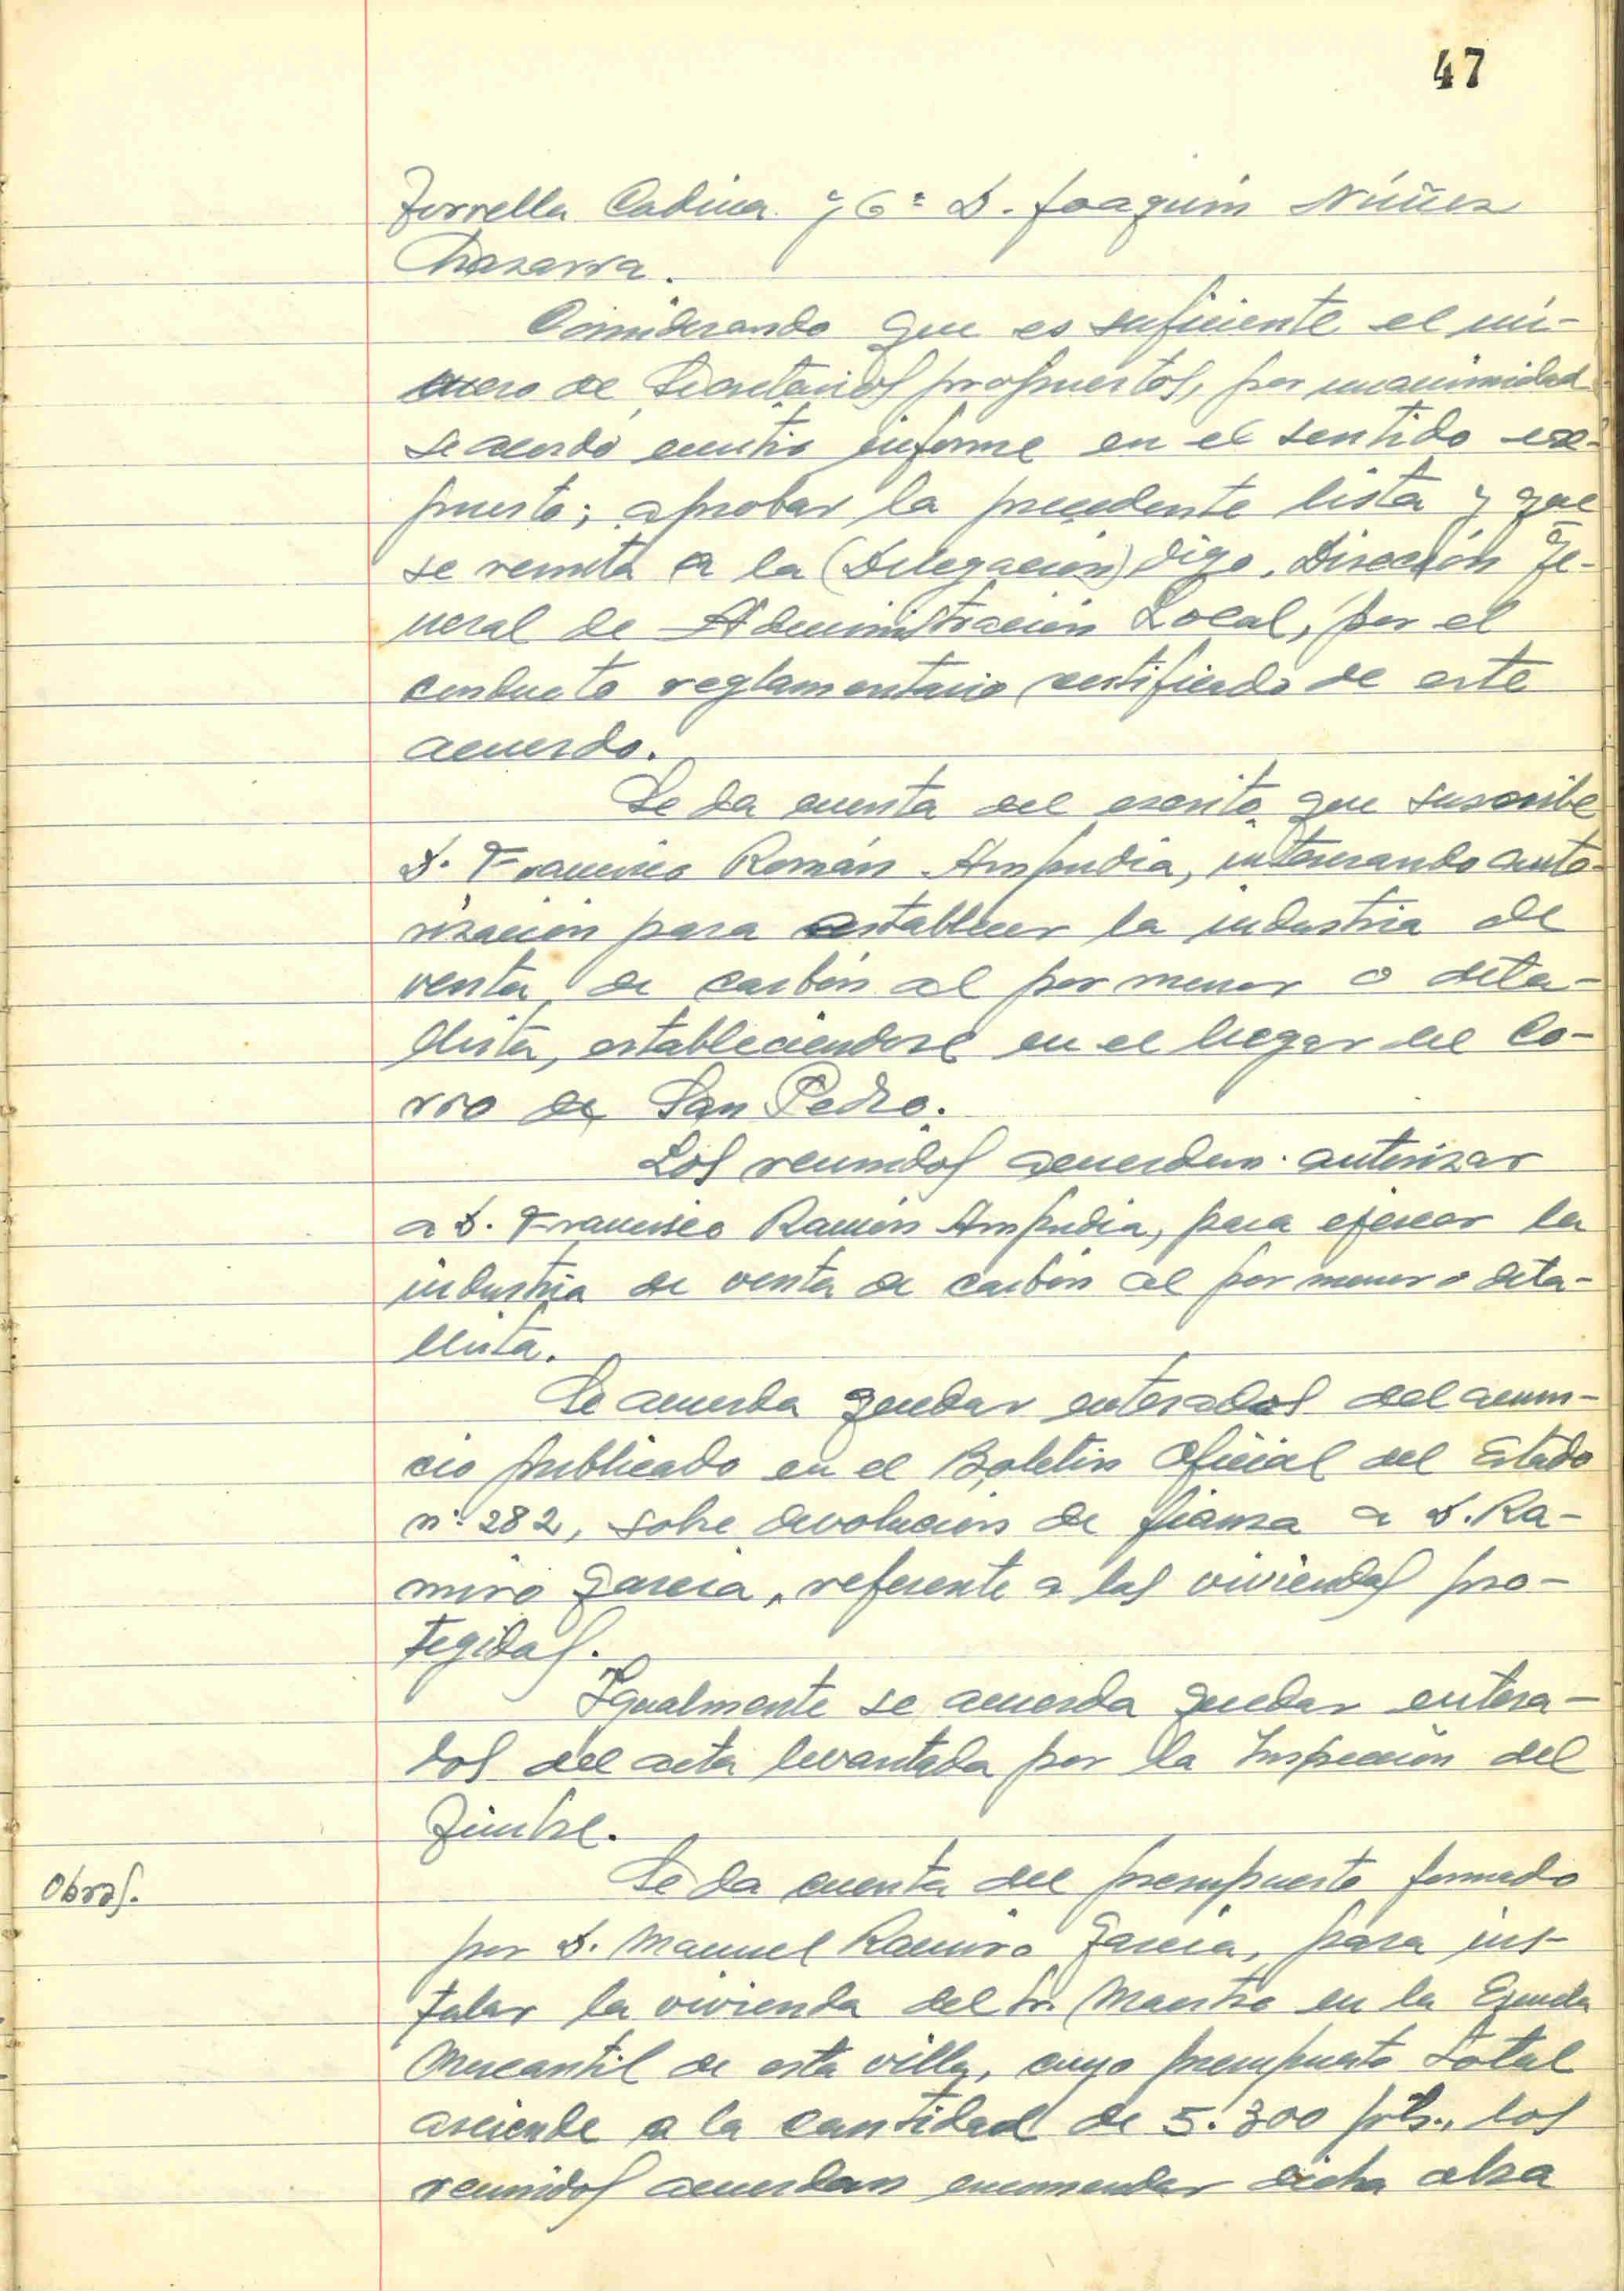 47
Torrella Cadina y 6º D. Joaquín Núñez
Chazarra.
Considerando que es suficiente el nú-
mero de Secretarios propuestos, por unanimidad
se acordó emitir informe en el sentido ex-
puesto; aprobar la precedente lista y que
se remita a la (Delegación) digo, Dirección Ge-
neral de Administración Local, por el
conducto reglamentario certificado de este
acuerdo.
Se da cuenta del escrito que suscribe
D. Francisco Román Ampudia, interesando auto-
rización para establecer la industria de
venta de carbón al por menor o deta-
llista, estableciendose en el lugar del Co-
rro de San Pedro.
Los reunidos acuerdan autorizar
a D. Francisco Ramón Ampudia, para ejercer la
industria de venta de carbón al por menor o deta-
llista.
Se acuerda quedar enterados del anun-
cio publicado en el Boletín Oficial del Estado
nº 282, sobre devolución de fianza a D. Ra-
miro García, referente a las viviendas pro-
tegidas.
Igualmente se acuerda quedar entera-
dos del acta levantada por la Inspección del
Timbre.
Obras.
Se da cuenta del presupuesto formado
por D. Manuel Ramiro García, para ins-
talar la vivienda del Sr. Maestro en la Escuela
Mercantil de esta villa, cuyo presupuesto total
asciende a la cantidad de 5.300 pts., los
reunidos acuerdan encomendar dicha obra